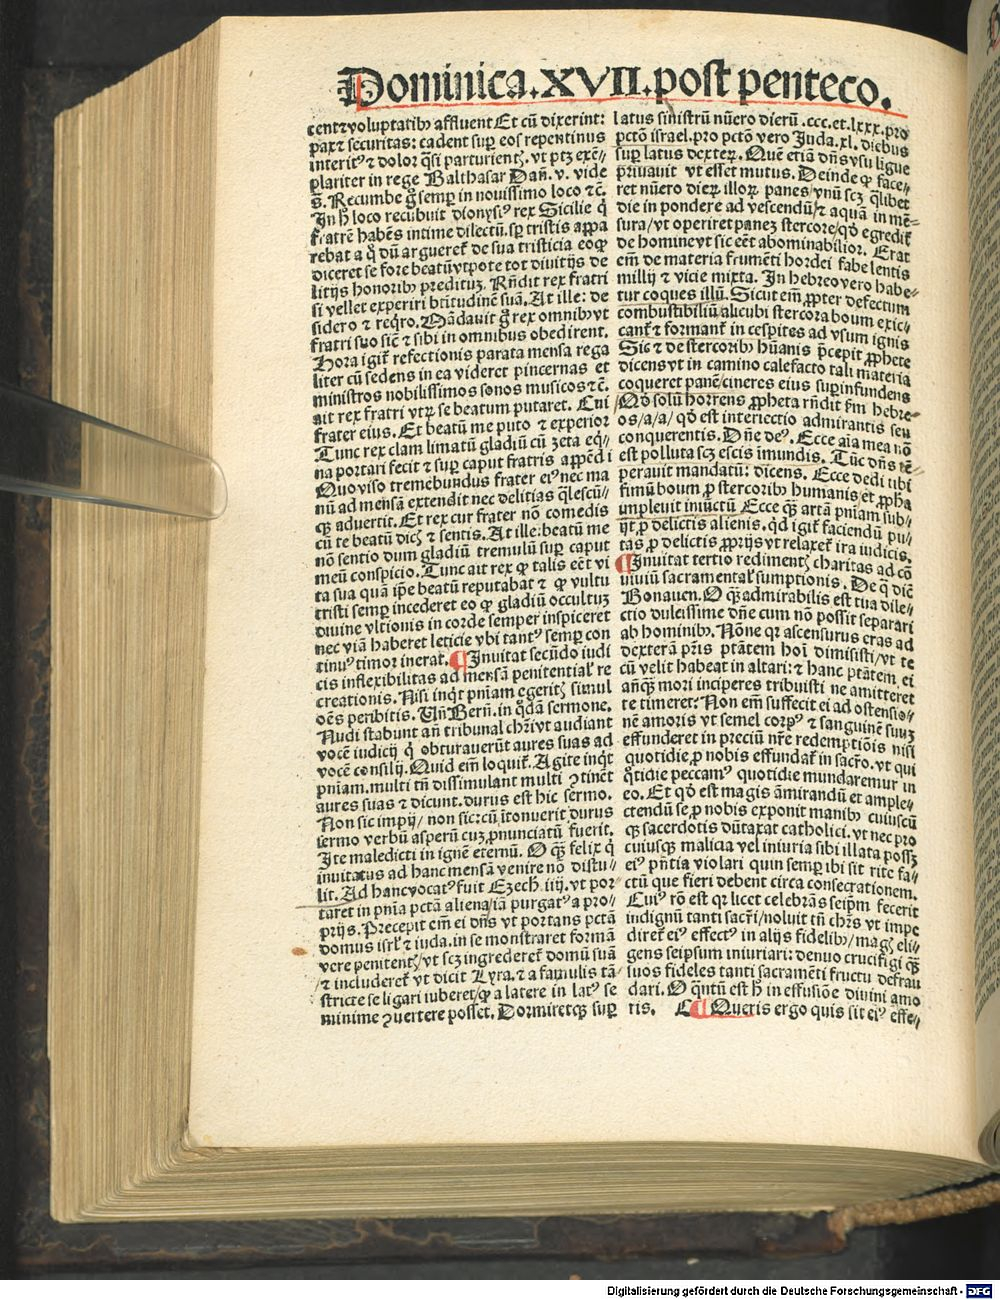 Dominica.XVII.post penteco.
cent⁊voluptatibꝰ affluent Et cū dixerint:
pax⁊ securitas: cadent suꝑ eos repentinus
interitꝰ ⁊ dolor q̄si parturientꝭ. vt ptꝫ exē-
plariter in rege Balthasar Dañ. v. vide
s̄. Recumbe g̊ semꝑ in nouissimo loco ⁊c̄.
In h̓ loco recubuit dionysiꝰ rex Sicilie q̇
fratrē habēs intime dilectū. sꝑ tristis appa
rebat a q̇ dū argueret̄ de sua tristicia eoꝙ
diceret se fore beatūvtpote tot diuitijs de
litijs honoribꝰ preditus. Rn̄dit rex fratri
si vellet experiri bt̄itudinē suā. At ille: de
sidero ⁊ reqro. Mādauit g̊ rex omnibꝰvt
fratri suo sic̄ ⁊ sibi in omnibus obedirent.
Hora igit̄ refectionis parata mensa rega
liter cū sedens in ea videret pincernas et
ministros nobilissimos sonos musicos⁊c̄.
ait rex fratri vtꝝ se beatum putaret. Cui
frater eius. Et beatū me puto ⁊ experior
Tunc rex clam limatū gladiū cū zeta eq̇-
na portari fecit ⁊ suꝑ caput fratris appēdi
Quo viso tremebundus frater eiꝰ nec ma
nū ad mēsā extendit nec delitias q̄lescū-
qꝫ aduertit. Et rex cur frater nō comedis
cū te beatū dicꝭ ⁊ sentis. At ille: beatū me
nō sentio dum gladiū tremulū suꝑ caput
meū conspicio. Tunc ait rex ꝙ talis eēt vi
ta sua quā ip̄e beatū reputabat ⁊ ꝙ vultu
tristi semꝑ incederet eo ꝙ gladiū occultuꝫ
diuine vltionis in corde semper inspiceret
nec viā haberet leticie vbi tantꝰ semꝑ con
tinuꝰ timor inerat. ¶Inuitat secūdo iudi
cis inflexibilitas ad mensā penitentialꝭ re
creationis. Nisi inq̇t pn̄iam egeritꝭ simul
oēs peribitis. Un̄ Bern̄. in q̇dā sermone.
Nudi stabunt an̄ tribunal chr̄i vt audiant
vocē iudicij q̇ obturauerūt aures suas ad
vocē consilij. Quid em̄ loquit̄. Agite inq̇t
pn̄iam. multi tn̄ dissimulant multi ꝯtinēt
aures suas ⁊ dicunt. durus est hic sermo.
Non sic impij/ non sic: cū ītonuerit durus
sermo verbū asperū cuꝫ ꝓnunciatū fuerit.
Ite maledicti in ignē eternū. O qꝫ felix q̇
inuitatus ad hanc mēsā venire nō distu-
lit. Ad hanc vocatꝰ fuit Ezech. iiij. vt por-
taret in pn̄ia pctā aliena/iā purgatꝰ a pro-
prijs. Precepit em̄ ei dn̄s vt portans pctā
domus isrl̓ ⁊ iuda. in se monstraret formā
vere penitentꝭ/ vt scꝫ ingrederet̄ domū suā
/⁊ includeret̄ vt dicit Lyra. ⁊ a famulis tā-
stricte se ligari iuberet/ꝙ a latere in latꝰ se
minime ꝯuertere posset. Dormiretqꝫ suꝑ
latus sinistrū nūero dierū .ccc.et.lxxx.pro
pctō israel. pro pctō vero Juda. xl. diebus
suꝑ latus dexteꝝ. Quē etiā dn̄s vsu līgue
priuauit vt esset mutus. Deinde ꝙ face-
ret nūero dieꝝ illoꝝ panes/vnū scꝫ q̄libet
die in pondere ad vescendū/⁊ aquā in mē-
sura/vt operiret panez stercore/qd̓ egredit̄
de homine vt sic eēt abominabilior. Erat
em̄ de materia frumēti hordei fabe lentis
millij ⁊ vicie mixta. In hebreo vero habe-
tur coques illū. Sicut em̄ ꝓpter defectum
combustibiliū alicubi stercora boum exic-
cant̄ ⁊ formant̄ in cespites ad vsum ignis
Sic ⁊ de stercoribꝰ hūanis p̄cepit ꝓphete
dicens vt in camino calefacto tali materia
coqueret panē/cineres eius suꝑinfundens
Qd̓ solū horrens ꝓpheta rn̄dit scd̓m hebre-
os/a/a/ qd̓ est interiectio admirantis seu
conquerentis. Dn̄e deꝰ. Ecce aīa mea nō
est polluta scꝫ escis imundis. Tūc dn̄s tē-
perauit mandatū: dicens. Ecce dedi tibi
fimū boum ꝓ stercoribꝰ humanis et ꝓpha
impleuit iniūctū Ecce qꝫ artā pn̄iam sub-
ijt ꝓ delictis alienis. qd̓ igit̄ faciendū pu-
tas ꝓ delictis ꝓprijs vt relaxet̄ ira iudicis.
¶Inuitat tertio redimentꝭ charitas ad cō
uiuiū sacramentalꝭ sumptionis. De q̇ dic̄
Bonauen. O qꝫ admirabilis est tua dile-
ctio dulcissime dn̄e cum nō possit separari
ab hominibꝰ. Nōne qꝛ ascensurus eras ad
dexterā pr̄is ptātem hoī dimisisti/vt te
cū velit habeat in altari: ⁊ hanc ptātem ei
an̄qꝫ mori inciperes tribuisti ne amitteret
te timeret? Non em̄ suffecit ei ad ostensio-
nē amoris vt semel corpꝰ ⁊ sanguinē suuꝫ
effunderet in preciū nr̄e redemptiōis nisi
quotidie ꝓ nobis effundat̄ in sacr̄o. vt qui
q̇tidie peccamꝰ quotidie mundaremur in
eo. Et qd̓ est magis āmirandū et ample-
ctendū se ꝓ nobis exponit manibꝰ cuiuscū
qꝫ sacerdotis dūtaxat catholici. vt nec pro
cuiusqꝫ malicia vel iniuria sibi illata possꝫ
eiꝰ pn̄tia violari quin semꝑ ibi sit rite fa-
ctū que fieri debent circa consecrationem.
Cuiꝰ rō est qꝛ licet celebrās seip̄m fecerit
indignū tanti sacr̄i/noluit tn̄ chr̄s vt impe
diret̄ eiꝰ effectꝰ in alijs fidelibꝰ/magꝭ eli-
gens seipsum iniuriari: denuo crucifigi qꝫ
suos fideles tanti sacramēti fructu defrau
dari. O q̄ntū est h̓ in effusiōe diuini amo
ris. C ¶Queris ergo quis sit eiꝰ effe-
Digitalisierung gefördert durch die Deutsche Forschungsgemeinschaft - DFG